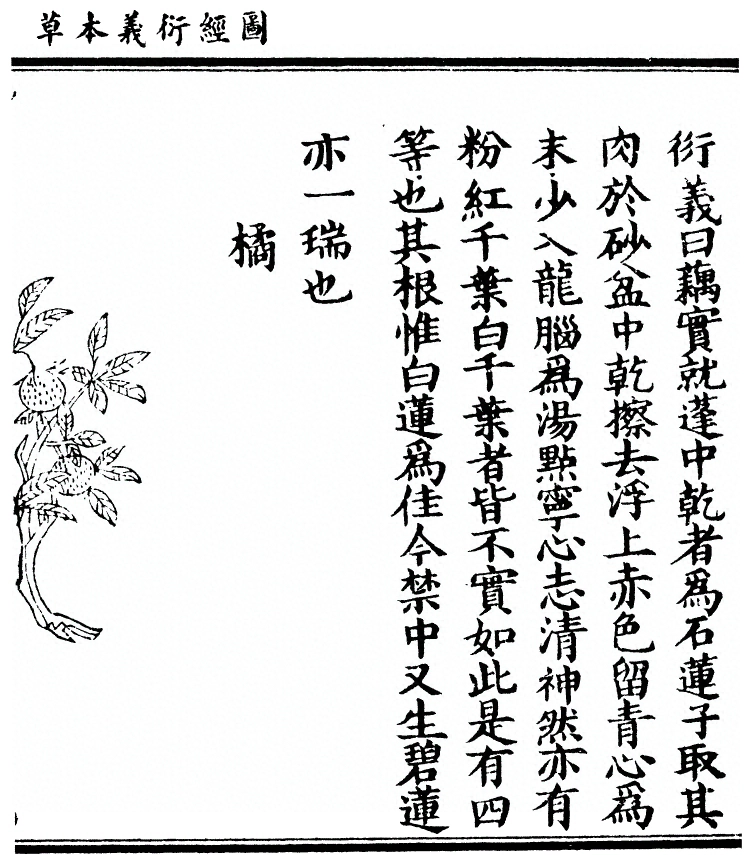 圖經衍義本草
衍義曰藕實就蓬中乾者爲石蓮子取其
肉於砂盆中乾擦去浮上赤色留青心爲
末少入龍腦爲湯點寧心志清神然亦有
粉紅千葉白千葉者皆不實如此是有四
等也其根惟白蓮爲佳今禁中又生碧蓮
亦一瑞也
橘